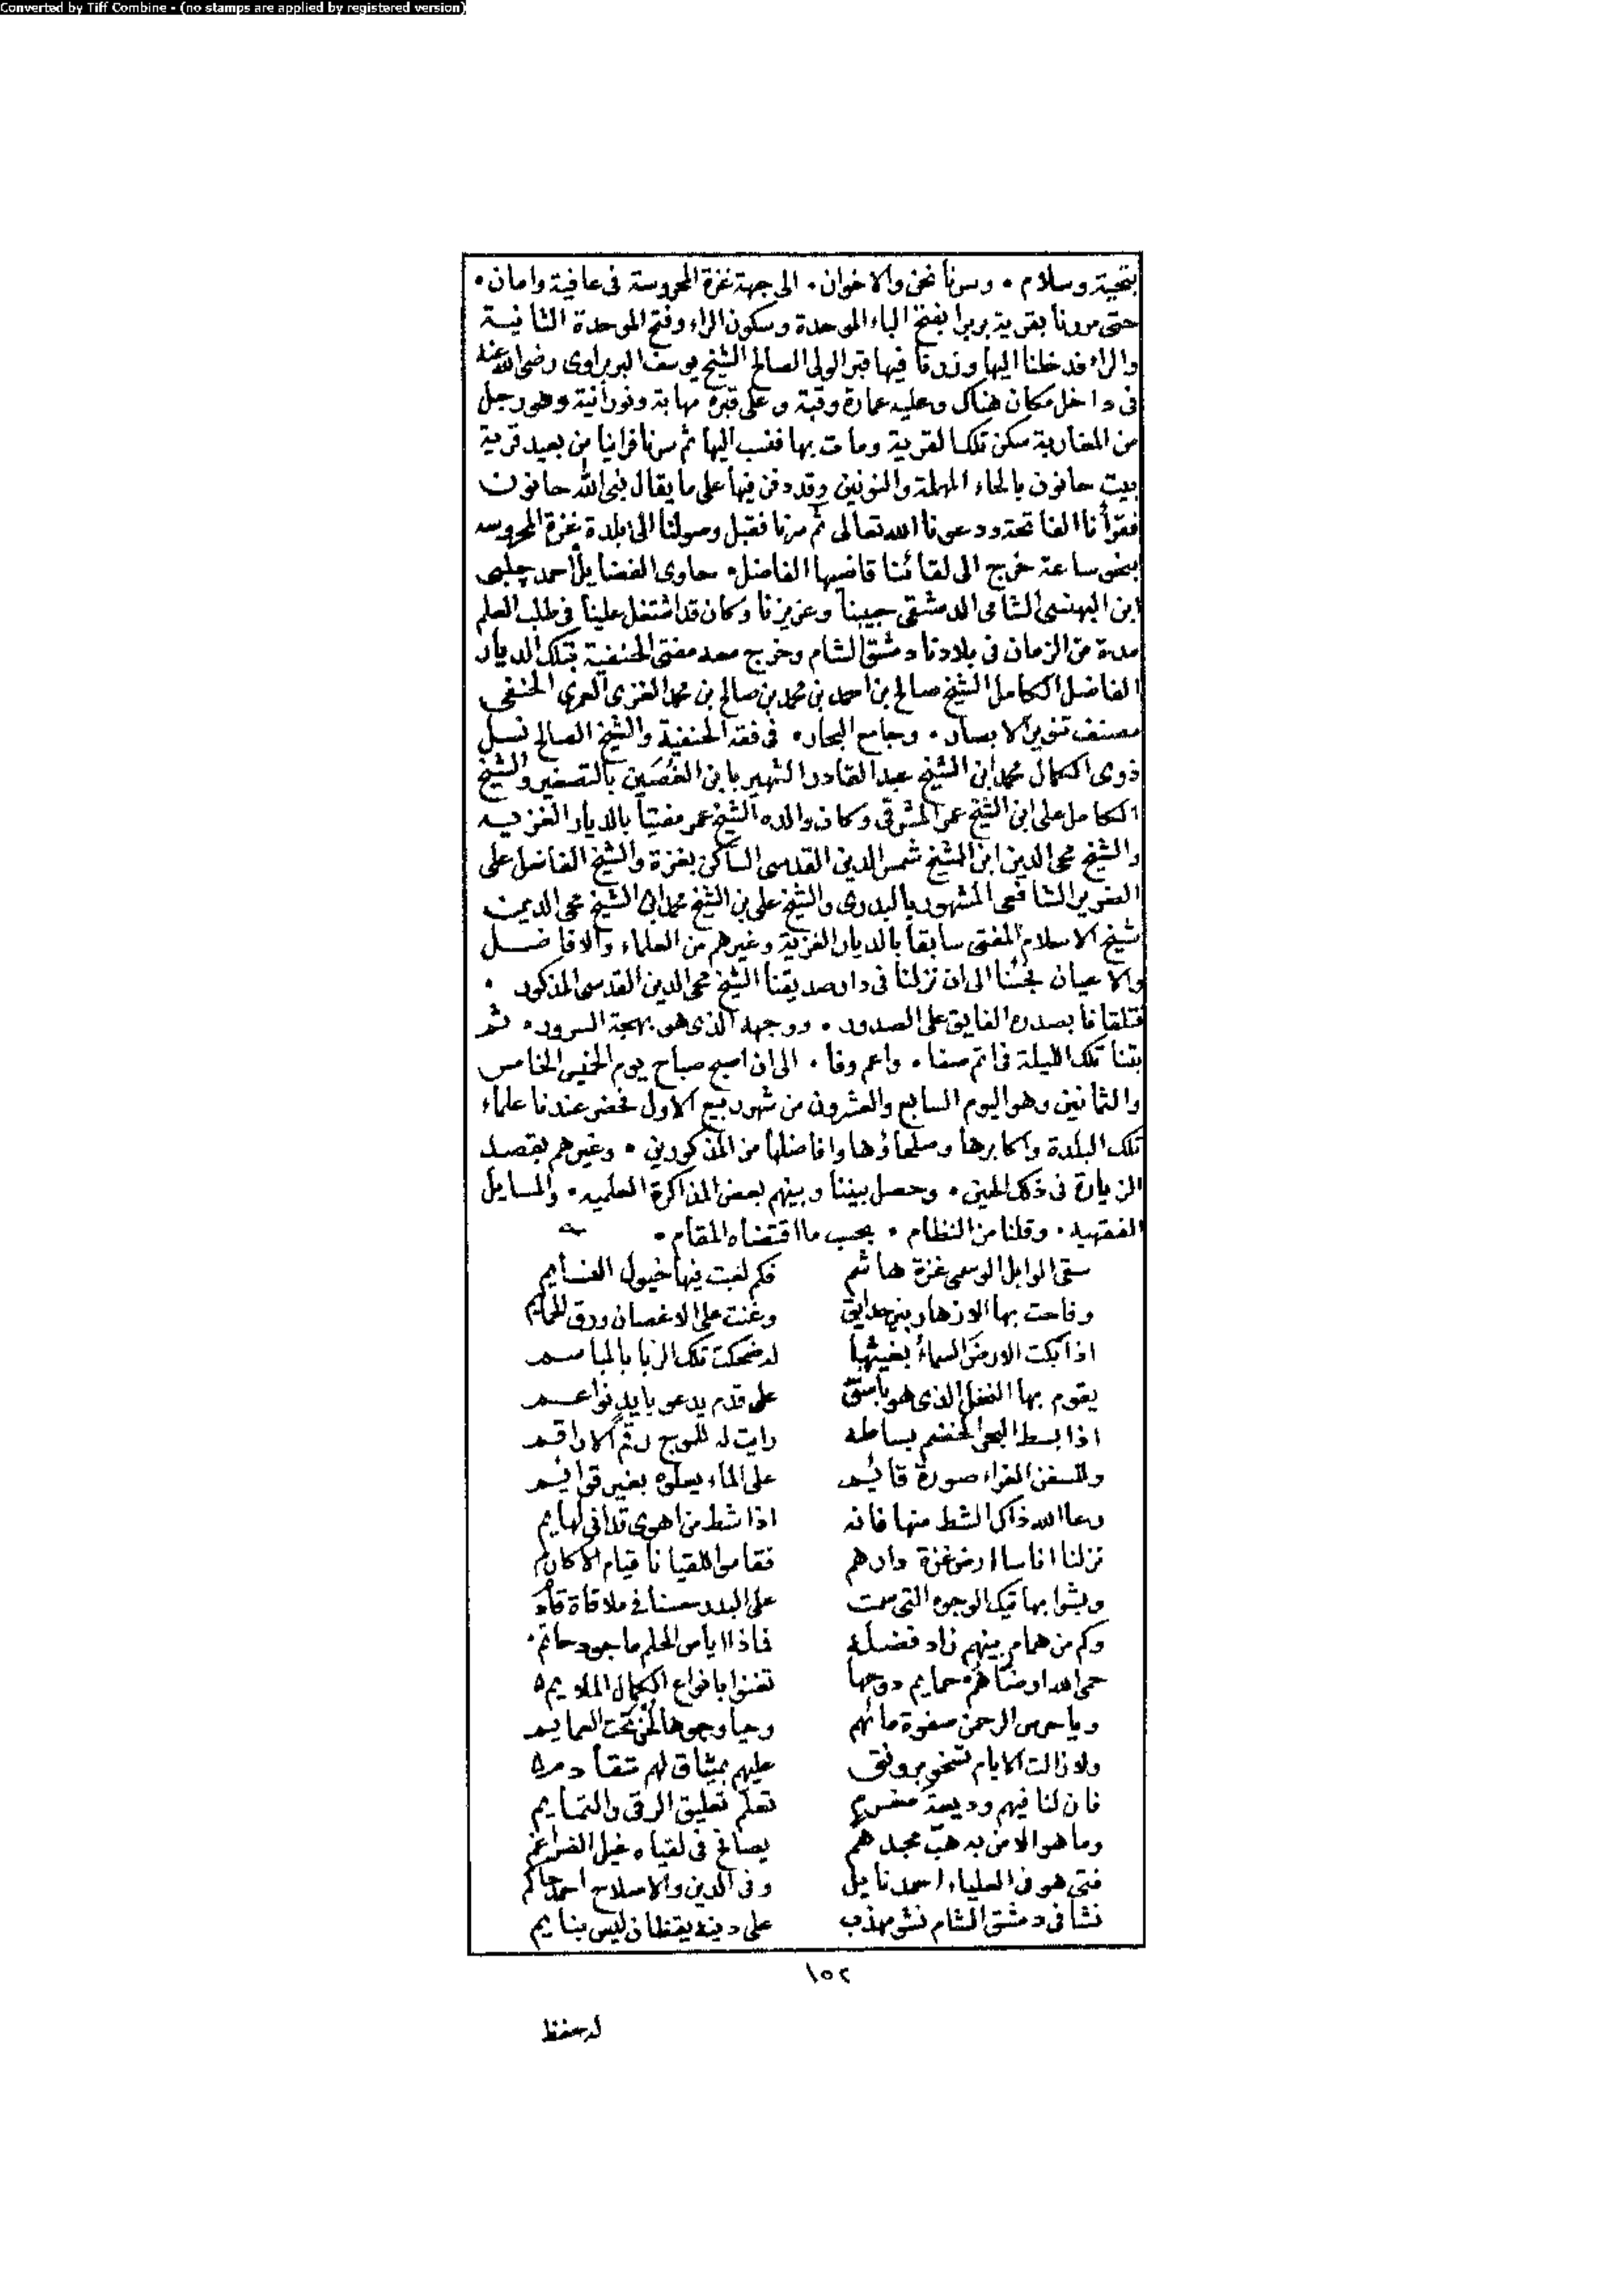 Converted by Tiff Combine - (no stamps are applied by registered version)
بتحية وسلام • وسرنا نحن والاخوان • الى جهة غزة المحروسة فى عافية وامان •
حتى مررنا بقرية بربرا بفتح الباء الموحدة وسكون الراء وفتح الموحدة الثانية
والراء فدخلنا اليها وزرنا فيها قبر الولى الصالح الشيخ يوسف البربراوى رضى الله عنه
فى داخل مكان هناك وعليه عمارة وقبة وعلى قبره مهابة ونورانية وهو رجل
من المغاربة سكن تلك القرية ومات بها فنسب اليها ثم سرنا فراينا من بعيد قرية
بيت حانون بالحاء المهملة والنونين وقد دفن فيها على ما يقال نبى الله حانون
فقرأنا الفاتحة ودعونا الله تعالى ثم سرنا فقبل وصولنا الى بلدة غزة المحروسه
بنحو ساعة خرج الى لقائنا قاضيها الفاضل • حاوى الفضايل أحمد چلبى
ابن البهنسى الشامى الدمشقى حبيبنا وعزيزنا وكان قد اشتغل علينا فى طلب العلم
مدة من الزمان فى بلادنا دمشق الشام وخرج معه مفتى الحنفية بتلك الديار
الفاضل الكامل الشيخ صالح بن احمد بن محمد بن صالح بن محمد الغزى العمرى الحنفى
مصنف تنوير الابصار • وجامع البحار • فى فقه الحنفية والشيخ الصالح نسل
ذوى الكمال محمد ابن الشيخ عبد القادر الشهير بابن الغصين بالتصغير والشيخ
الكامل على ابن الشيخ عمر المشرقى وكان والده الشيخ عمر مفتيا بالديار الغزيه
والشيخ محى الدين ابن الشيخ شمس الدين القدسى الساكن بغزة والشيخ الفاضل على
الضرير الشافعى المشهور بالبدرى والشيخ على بن الشيخ محمد ابن الشيخ محى الدين
شيخ الاسلام المفتى سابقا بالديار الغزية وغيرهم من العلماء والافاضل
والاعيان فجئنا الى ان نزلنا فى دار صديقنا الشيخ محى الدين القدسى المذكور •
فتلقانا بصدره الفايق على الصدور • ووجهه الذى هو بهجة السرور • ثم
بتنا تلك الليلة فى اتم صفا • واعم وفا • الى ان اصبح صباح يوم الخميس الخامس
والثمانين وهو اليوم السابع والعشرون من شهر ربيع الاول فحضر عندنا علماء
تلك البلدة واكابرها وصلحاؤها وافاضلها من المذكورين • وغيرهم بقصد
الزيارة فى ذلك الحين • وحصل بيننا وبينهم بعض المذاكرة العلميه • والمسايل
الفقهيه • وقلنا من النظام • بحسب ما اقتضاه المقام •
سقى الوابل الوسمى غزة هاشم فكم لعبت فيها خيول النسايم
وفاحت بها الازهار بين حدايق وغنت على الاغصان ورق الحمايم
اذا بكت الارض السماء بغيثها له ضحكت تلك الربا بالمباسم
يقوم بها النخل الذى هو باسق على قدم يدعو بايد نواعم
اذا بسط البحر الخضم بساطه رايت له للموج رقم الاراقم
وللسفن الغراء صورة قائم على الماء يعلوه بغير قوائم
رعا الله ذاك الشط منها فانه اذا شط من اهوى تلافى لهايم
نزلنا اناسا ارض غزة دارهم فقاموا للقيانا قيام الاكارم
وبشوا بهاتيك الوجوه التى سمت على البدر حسنا فى ملاقاة قادم
وكم من همام بينهم زاد فضله فاذا اياس الحلم ما جود حاتم •
حمى الله ارضا هم حمايم دوحها تغنوا بانواع الكمال الملايم
ويا حرس الرحمن صفوة مائهم وحيا وجوها لحن تحت العمايم
ولا زالت الايام تسخو برونق عليهم بميثاق لهم متقادم
فان لنا فيهم وديعة تعلم تعليق الرقى والتمايم
وما هو الا من به هب مجدهم يصالح فى لقياه غيل الضراغم
فتى هو فى العلياء احمد نايل وفى الدين والاصلاح احمد حاكم
نشا فى دمشق الشام نشو مهذب على دينه يقظان ليس بنايم
١٥٢
له حفظ